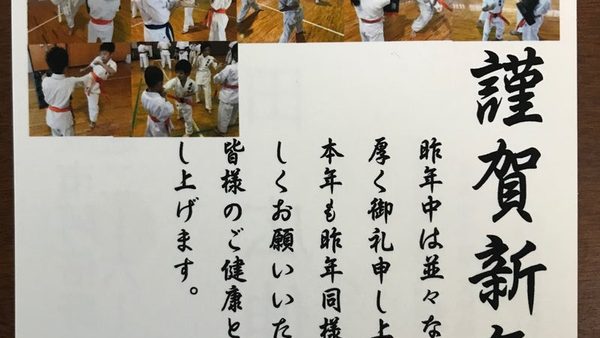 謹賀新年
昨年中は並々な
厚く御礼申し上
本年も昨年同様
しくお願いいた
皆様のご健康と
し上げます。